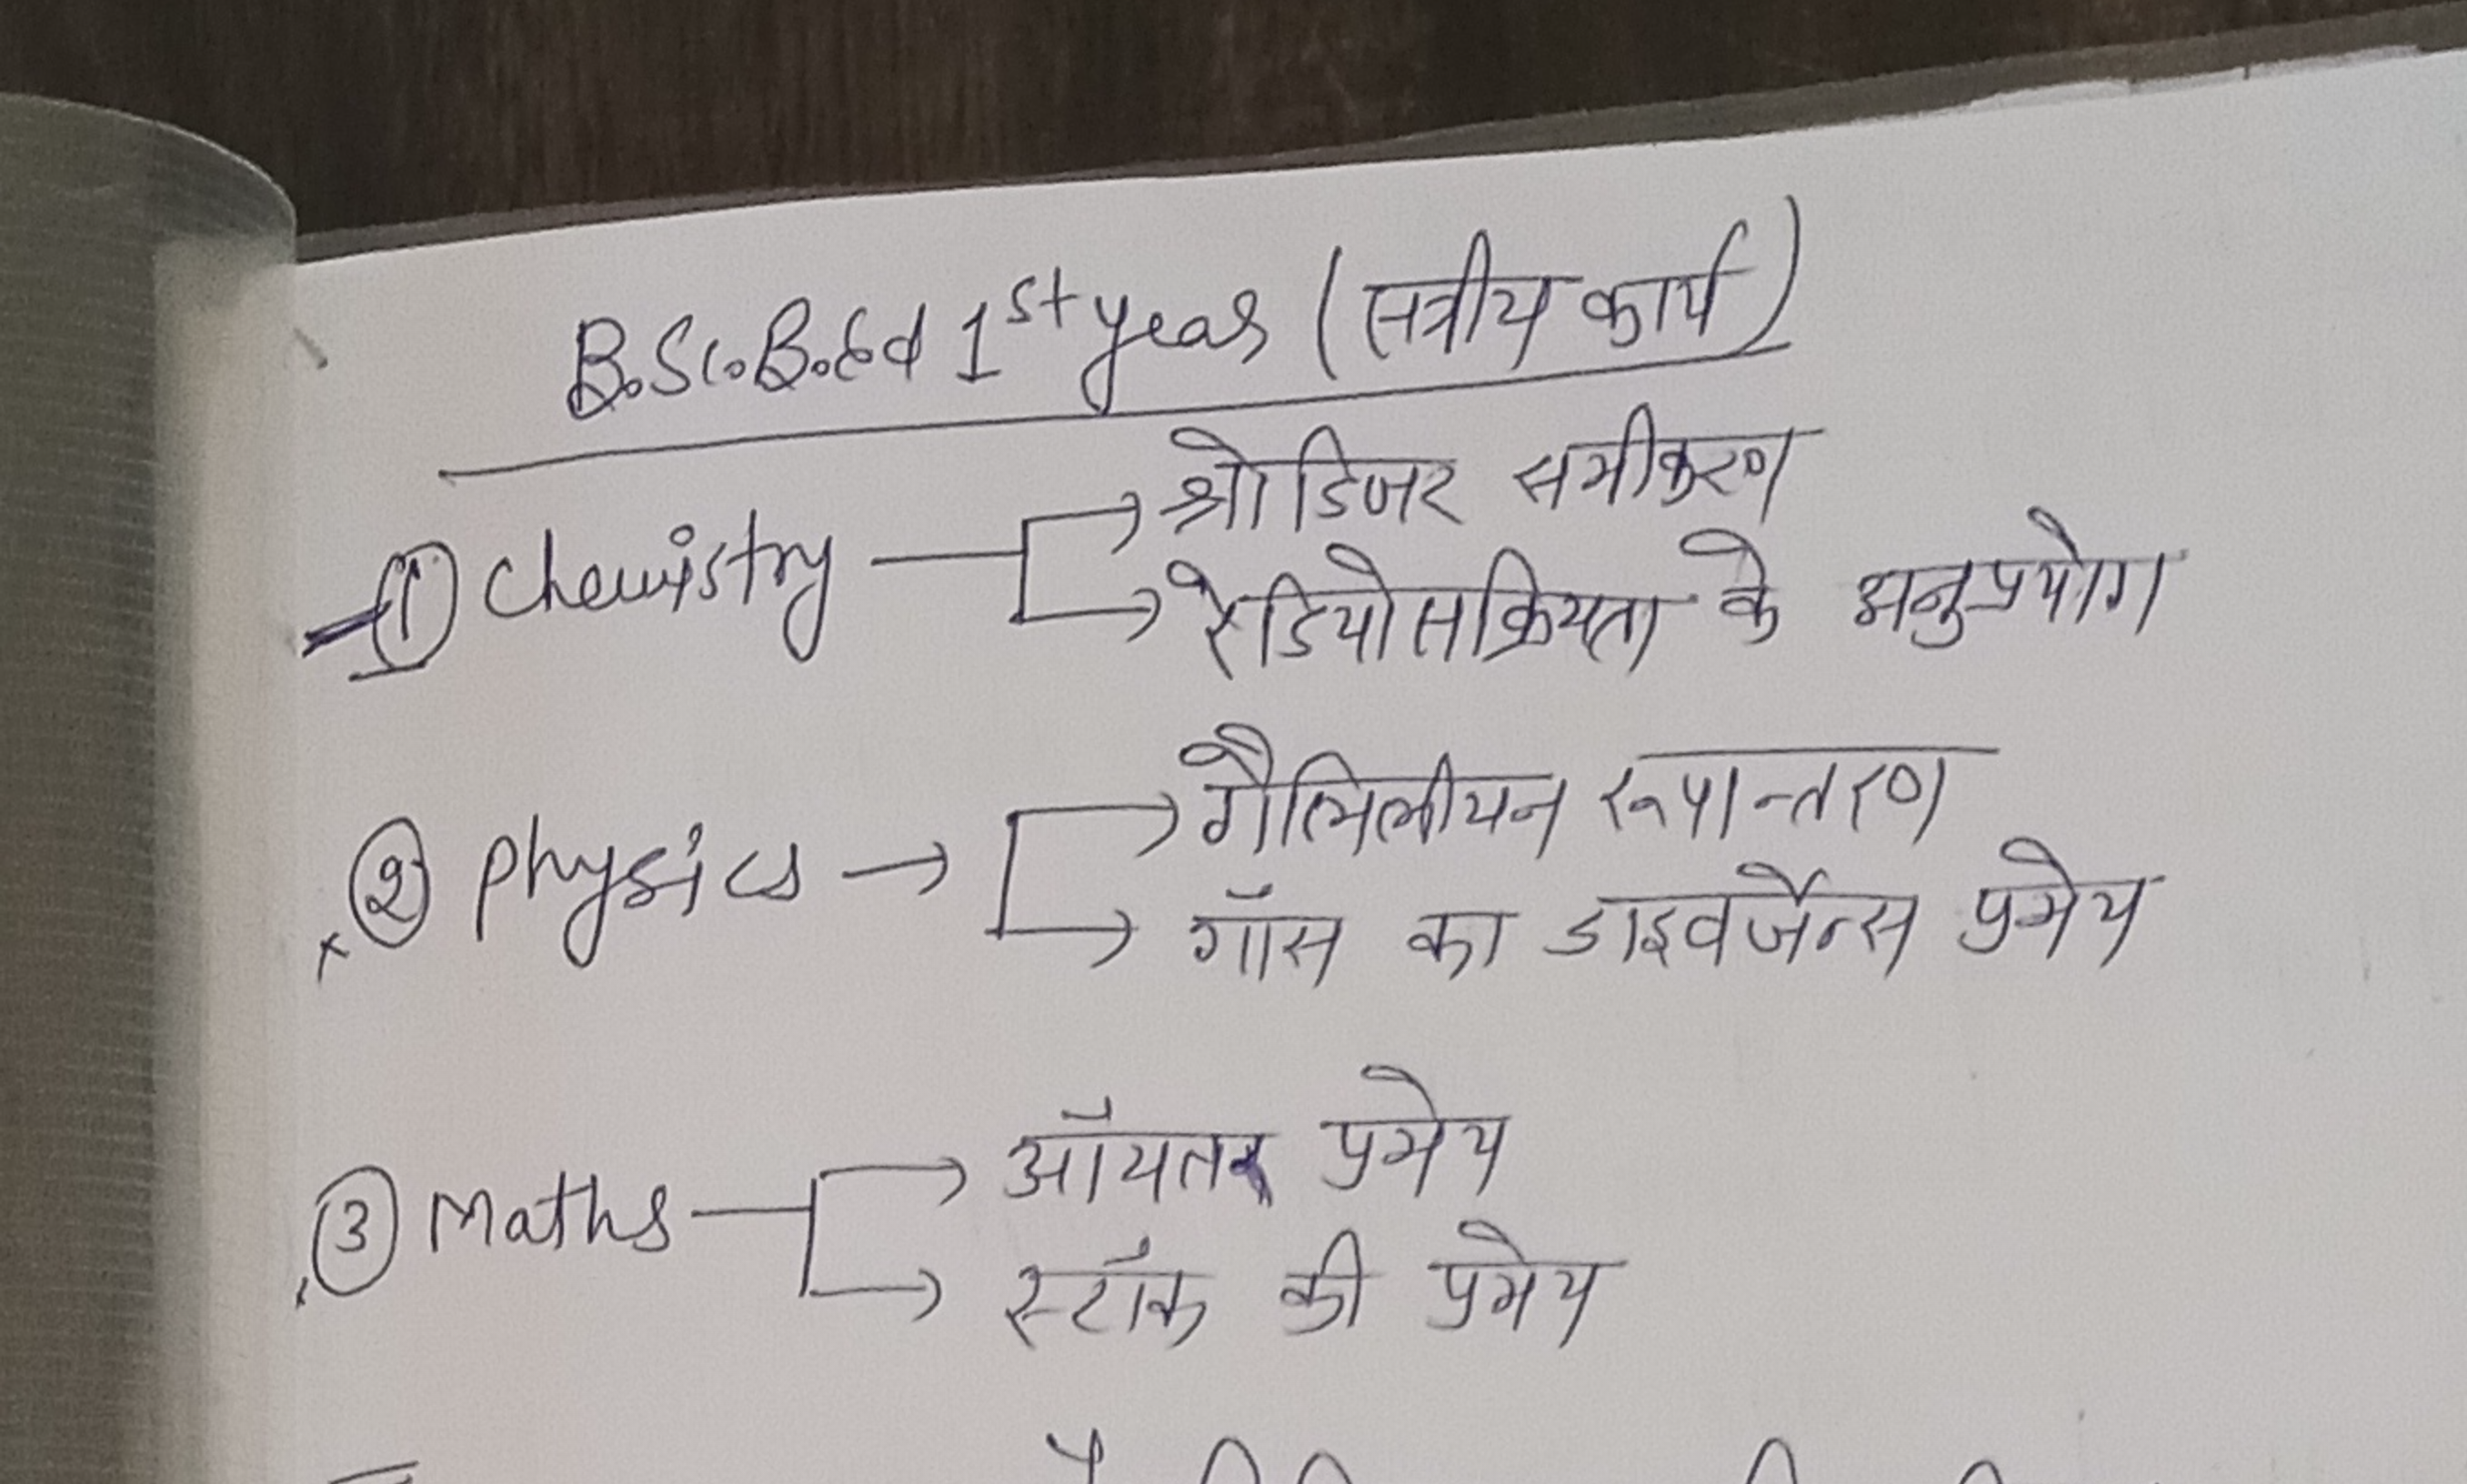 B.Sc.B.Ed 1st year (सत्रीय कार्य)
① Chemistry → श्रोडिंजर समीकरण
→ रेडियोसक्रियता के अनुप्रयोग
② Physics → गैलिलीयन रूपान्तरण
→ गॉस का डाइवर्जेन्स प्रमेय
③ Maths → प्रमेय
→ स्टॉक की प्रमेय